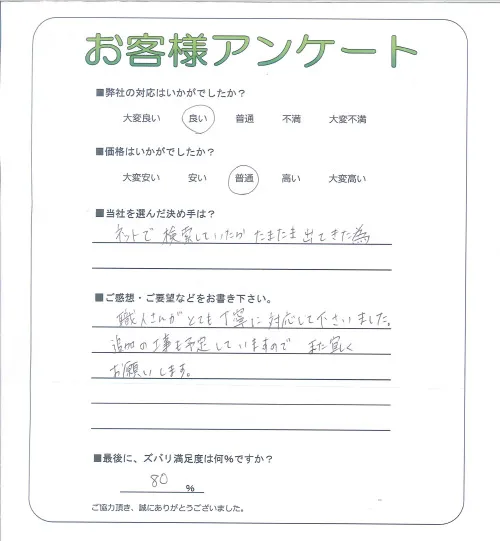 お客様アンケート
■弊社の対応はいかがでしたか？
大変良い 良い 普通 不満 大変不満
■価格はいかがでしたか？
大変安い 安い 普通 高い 大変高い
■当社を選んだ決め手は？
ネットで 検索していたが たまたま 出てきた為
■ご感想・ご要望などをお書き下さい。
職人さんがとても丁寧に対応して下さいました。
追加の工事も予定していますので また宜しく
お願いします。
■最後に、ズバリ満足度は何％ですか？
80 %
ご協力頂き、誠にありがとうございました。